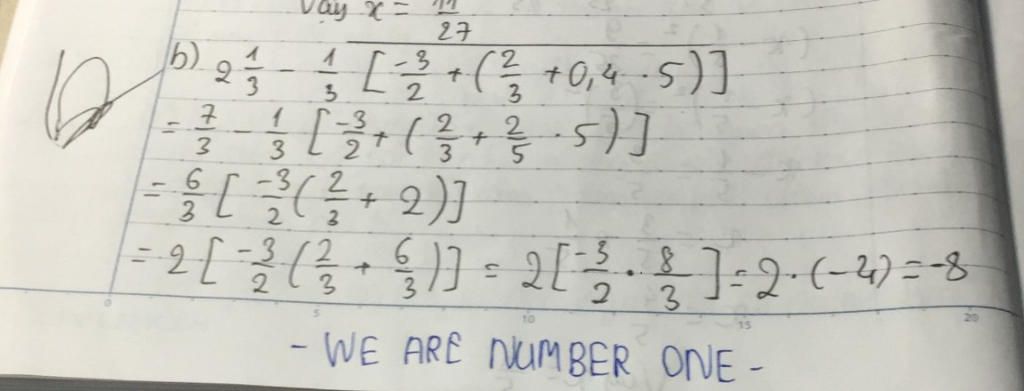 Vậy x = 11/27
b) 2 1/3 - 1/3 [-3/2 + (2/3 + 0,4 · 5)]
= 7/3 - 1/3 [-3/2 + (2/3 + 2/5 · 5)]
= 6/3 [-3/2 (2/3 + 2)]
= 2 [-3/2 (2/3 + 6/3)] = 2 [-3/2 · 8/3] = 2 · (-4) = -8
5 10 15 20
- WE ARE NUMBER ONE -